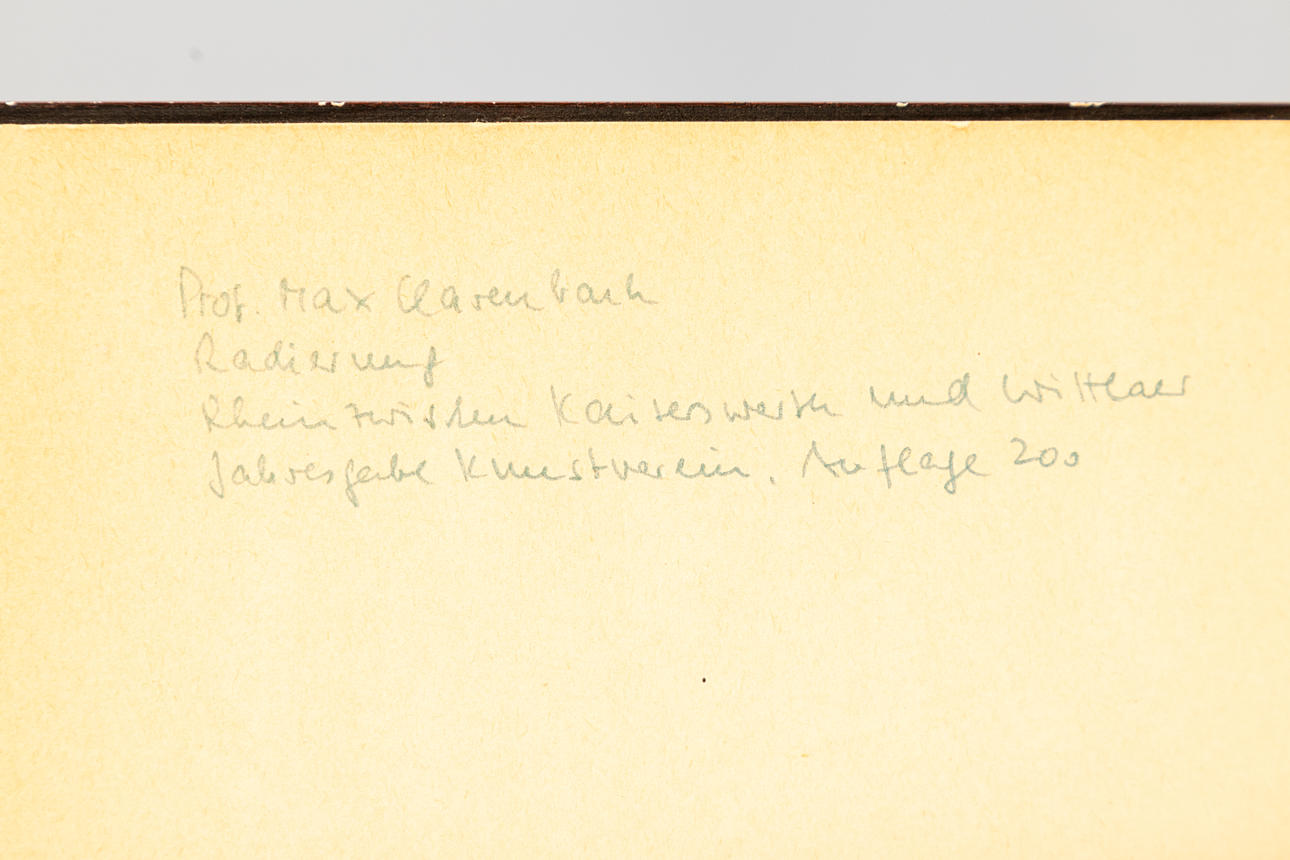 Prof. Max Clarenbach
Radierung
Rhein zwischen Kaiserswerth und Wittlaer
Jahresgabe Kunstverein, Auflage 200